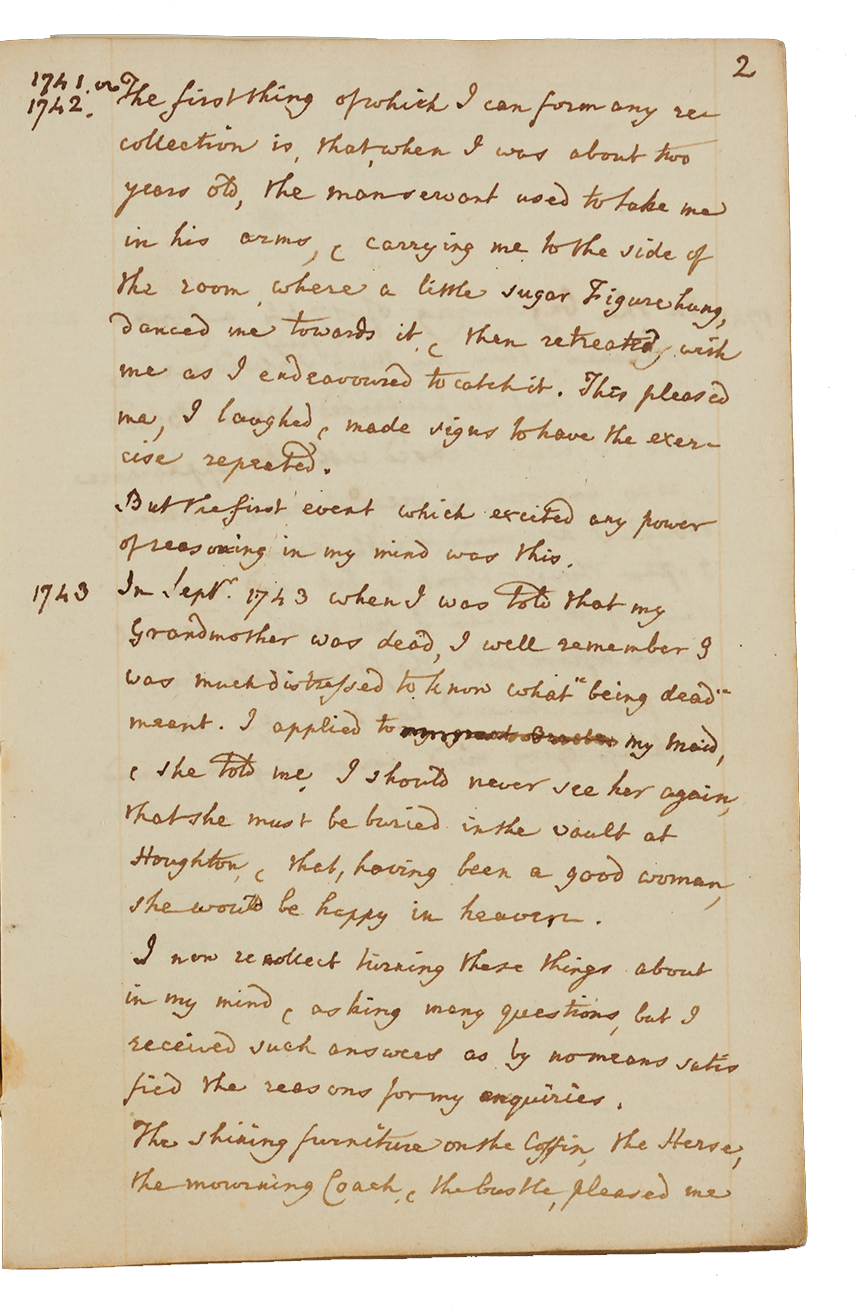 2
1741. or
1742.
The first thing of which I can form any re-
collection is, that, when I was about two
years old, the man servant used to take me
in his arms, & carrying me to the side of
the room, where a little sugar Figure hung,
danced me towards it, & then retreated, with
me as I endeavoured to catch it. This pleased
me, I laughed, & made signs to have the exer-
cise repeated.
But the first event which excited any power
of reasoning in my mind was this.
1743
In Septr. 1743 when I was told that my
Grandmother was dead, I well remember I
was much distressed to know what "being dead"
meant. I applied to my Maid,
& she told me, I should never see her again,
that she must be buried in the vault at
Houghton, & that, having been a good woman,
she would be happy in heaven.
I now recollect turning these things about
in my mind, & asking many questions, but I
received such answers as by no means satis
fied the reasons for my enquiries.
The shining furniture on the Coffin, the Herse,
the mourning Coach, & the bustle, pleased me